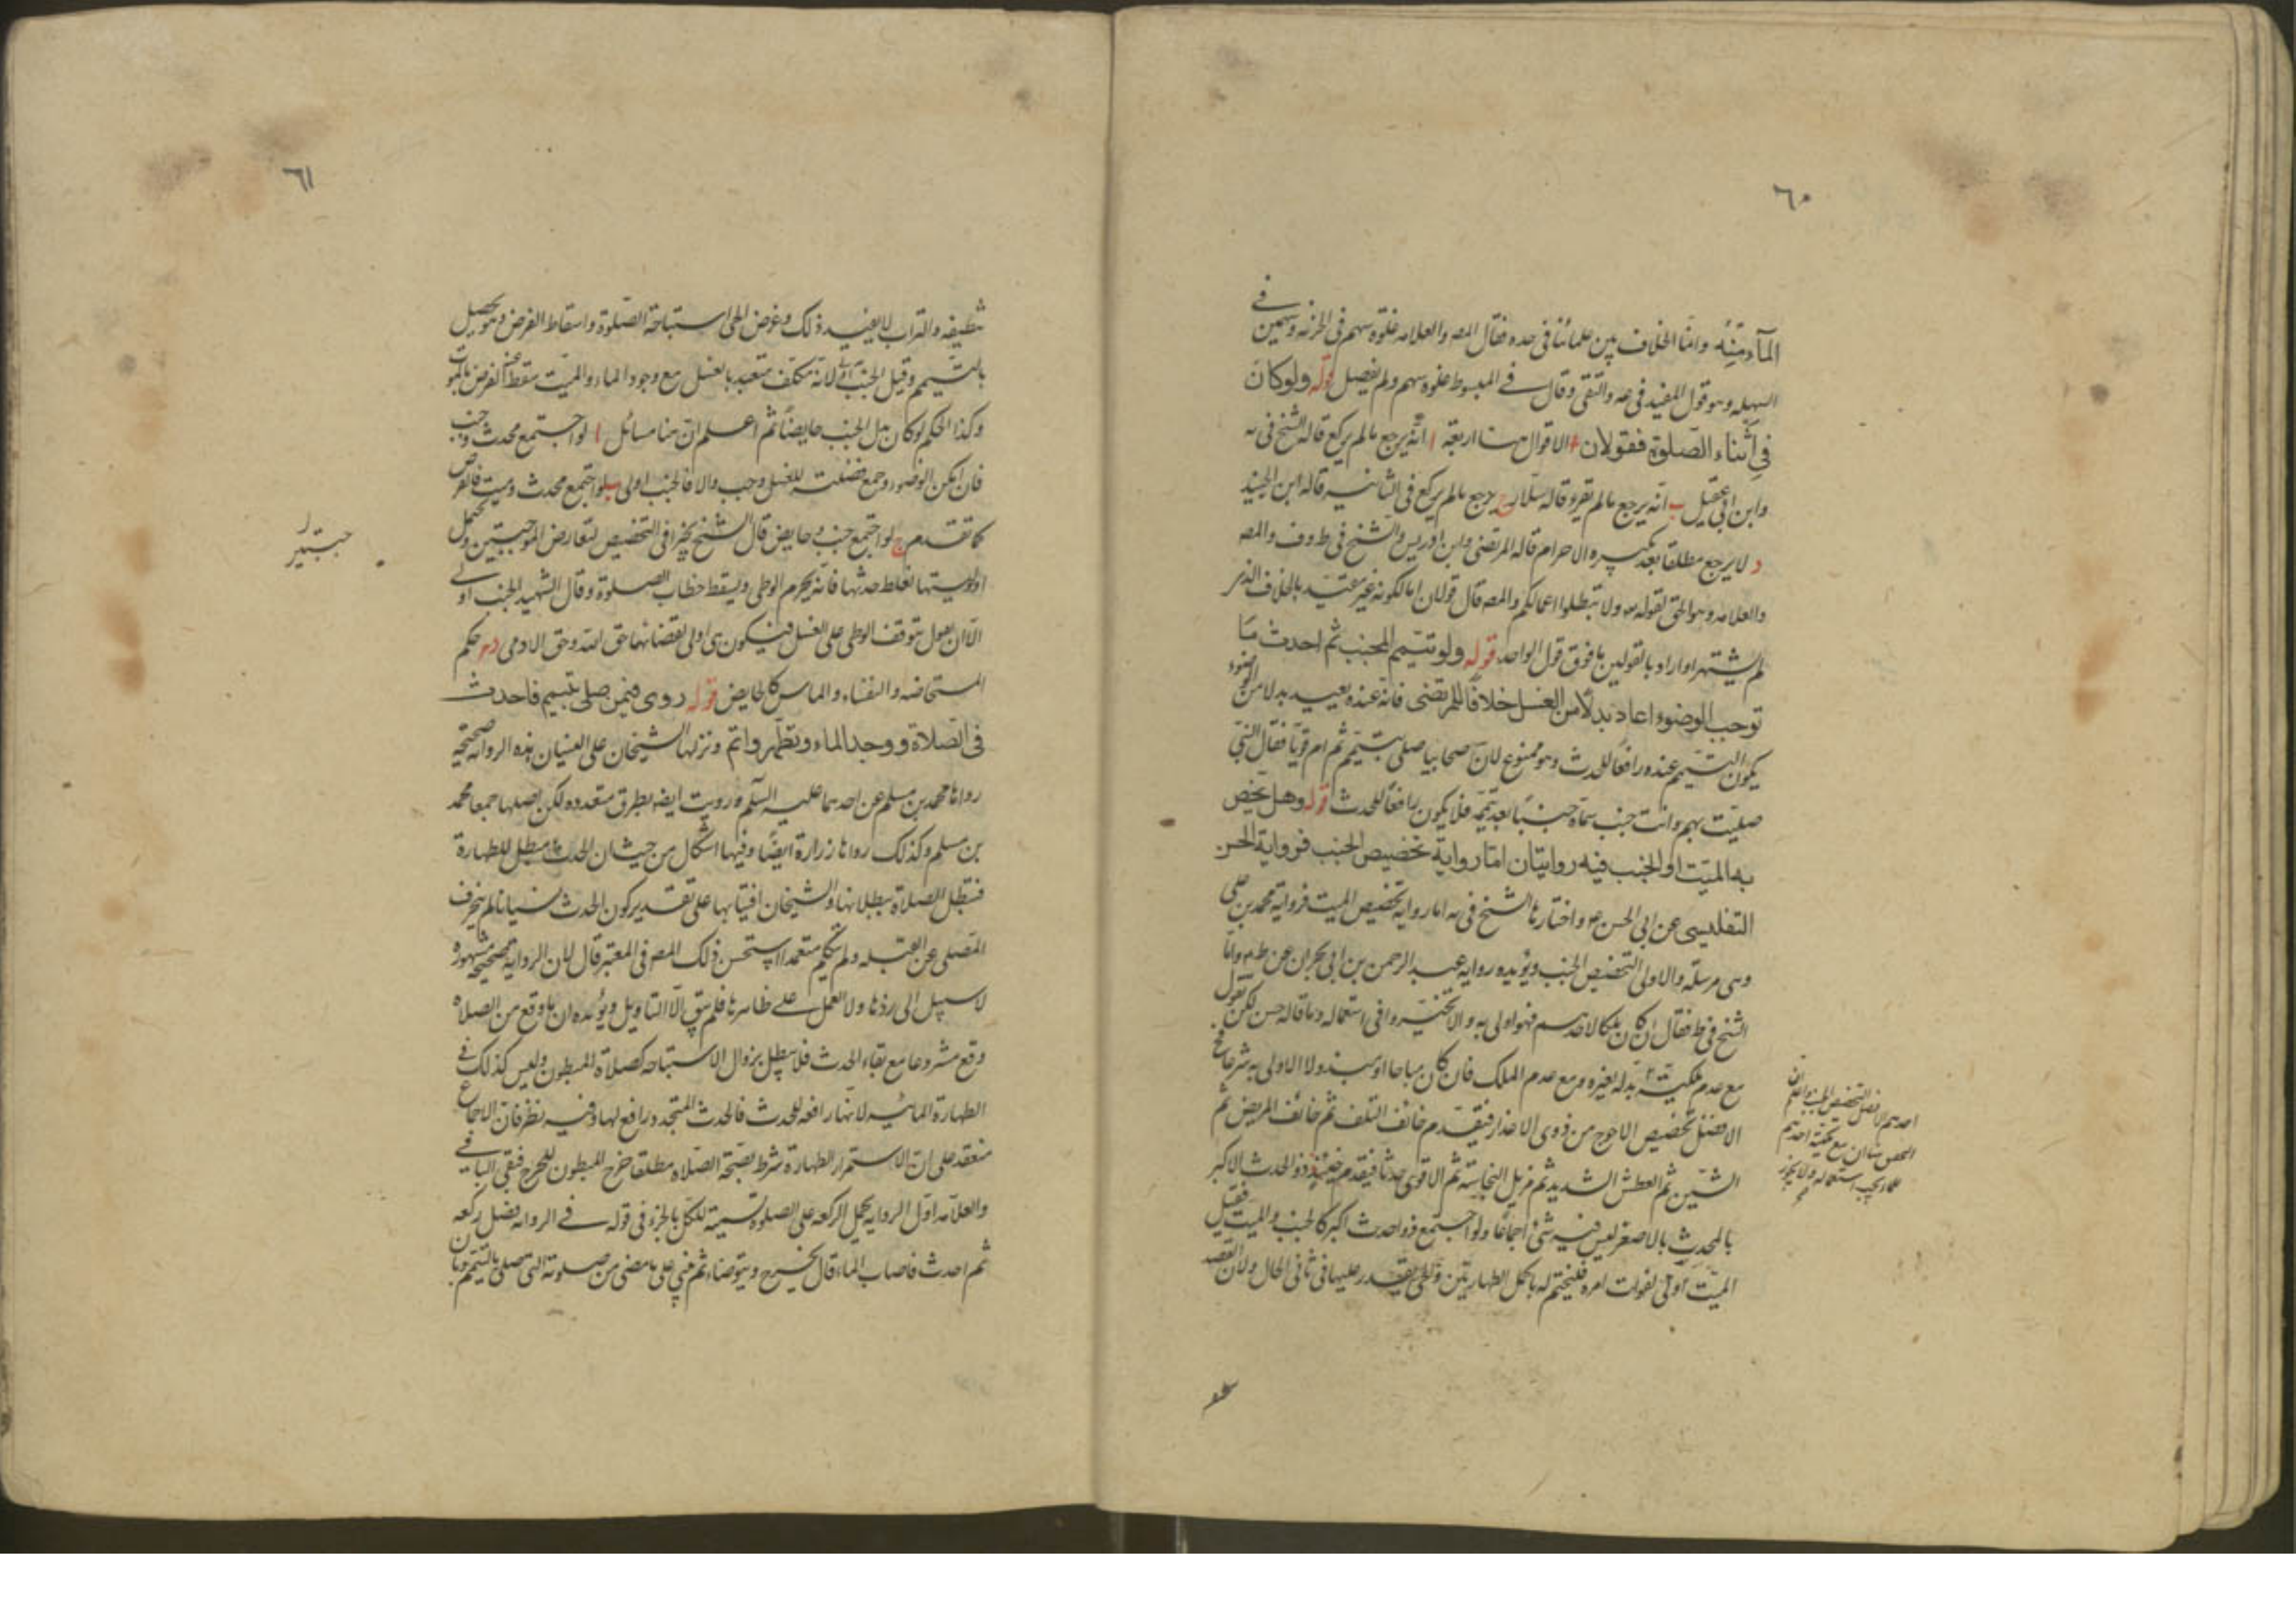 ٦٠
المآء مبينة واما الخلاف بين علمائنا فى حده فقال المص والعلامه غلوة سهم فى الحزنه وسهمين فى
السهله وهو قول المفيد فى عه والتقى وقال فى المبسوط غلوة سهم ولم يفصل قوله ولو كان
فى اثناء الصلوة فقولان الاقوال هنا اربعة ا انه يرجع مالم يركع قاله الشيخ فى يه
وابن ابى عقيل ب انه يرجع مالم يقرء وقاله سلار ج يرجع مالم يركع فى الثانيه قاله ابن الجنيد
د لا يرجع مطلقا بعد تكبيره الاحرام قاله المرتضى وابن ادريس والشيخ فى ط وف والمص
والعلامه وهو الحق لقوله تع ولا تبطلوا اعمالكم والمص قال قولان اما لكونه غير معتد بالخلاف الذى
لم يشتهر او اراد بالقولين ما فوق قول الواحد قوله ولو تيمم المجنب ثم احدث ما
توجب الوضوء اعاد بدلا من الغسل خلافا للمرتضى فانه عنده يعيد بدلا من الوضوء
يكون التيمم عنده رافعا للحدث وهو ممنوع لان صحابيا صلى بتيمم ثم ام قوما فقال النبى
صليت بهم وانت جنب سماه جنبا بعد تيممه فلا يكون رافعا للحدث قوله وهل يخص
به الميت او الجنب فيه روايتان اما رواية تخصيص الجنب فرواية الحسن
التفليسى عن ابى الحسن ع واختارها الشيخ فى يه اما رواية تخصيص الميت فرواية محمد بن على
وهى مرسلة والاولى التخصيص الجنب ويؤيده رواية عبد الرحمن بن ابى نجران عن ظم واما
الشيخ فى ط فقال ان كان ملكا لاحدهم فهو اولى به والا تخيروا فى استعماله وما قاله حسن لكن نقول
مع عدم ملكيته بذله لغيره ومع عدم الملك فان كان مباحا او مبذولا الاولى به شرعا
الافضل تخصيص الاحوج من ذوى الاعذار فيقدم خائف التلف ثم خائف المرض ثم
الشين ثم العطش الشديد ثم مزيل النجاسة ثم الاقوى حدثا فيقدم حينئذ ذو الحدث الاكبر
بالمحدث بالاصغر ليس فيه شئ اجماعا ولو اجتمع ذو احدث اكبر كالجنب والميت فقيل
الميت اولى لفوات امره فليختم له باكمل الطهارتين والحى يقدر عليها فى ثانى الحال ولان القصد
احدهم الافضل التخصيص الجنب واعلم ان
٦١
تنظيفه والتراب لا يفيد ذلك وغرض الحى استباحة الصلوة واسقاط الفرض وهو يحصل
بالتيمم وقيل الجنب اولى لانه مكلف متعبد بالغسل مع وجود الماء والميت سقط عنه الفرض بالموت
وكذا الحكم لو كان بدل الجنب حايضا ثم اعلم ان هنا مسائل ا لو اجتمع محدث وجنب
فان امكن الوضوء وجمع فضلته للغسل وجب والا فالجنب اولى ب لو اجتمع محدث وميت فالفرض
كما تقدم ج لو اجتمع جنب وحايض قال الشيخ يخيرا فى التخصيص لتعارض الموجبتين ويحتمل
اولويتها لغلظ حدثها فانه يحرم الوطى ويسقط خطاب الصلوة وقال الشهيد الجنب اولى
الا ان نقول بتوقف الوطى على الغسل فيكون هى اولى لقضائها حق الله وحق الادمى د حكم
المستحاضه والنفساء والماس كالحايض قوله روى فيمن صلى بتيمم فاحدث
فى الصلاة ووجد الماء وتطهر واتم ونزلها الشيخان على النسيان هذه الرواية صحيحة
رواها محمد بن مسلم عن احدهما عليه السلم ورويت ايضا بطرق متعدده لكن اصلها جمعا محمد
بن مسلم وكذلك رواها زرارة ايضا وفيها اشكال من حيث ان الحدث مبطل للطهارة
فتبطل الصلاة ببطلانها والشيخان افتيا بها على تقدير كون الحدث نسيانا مالم ينحرف
المصلى عن القبله ولم يتكلم متعمدا استحسن ذلك المص فى المعتبر قال لان الرواية صحيحة مشهوره
لا سبيل الى ردها ولا العمل على ظاهرها فلم يبق الا التاويل ويؤيده ان ما وقع من الصلاه
وقع مشروعا مع بقاء الحدث فلا يبطل بزوال الاستباحه كصلاة المبطون وليس كذلك فى
الطهارة المائيه لانها رافعه للحدث فالحدث المتجدد رافع لها وفيه نظر فان الاجماع
منعقد على ان الاستمرار الطهارة شرط لصحة الصلاه مطلقا خرج المبطون للحرج فبقى الباقى
والعلامه اول الرواية بحمل الركعه على الصلوة تسمية للكل بالجزء فى قوله فى الرواية فصلى ركعه
ثم احدث فاصاب الماء قال يخرج ويتوضاء ثم يبنى على ما مضى من صلوته التى صلى بالتيمم